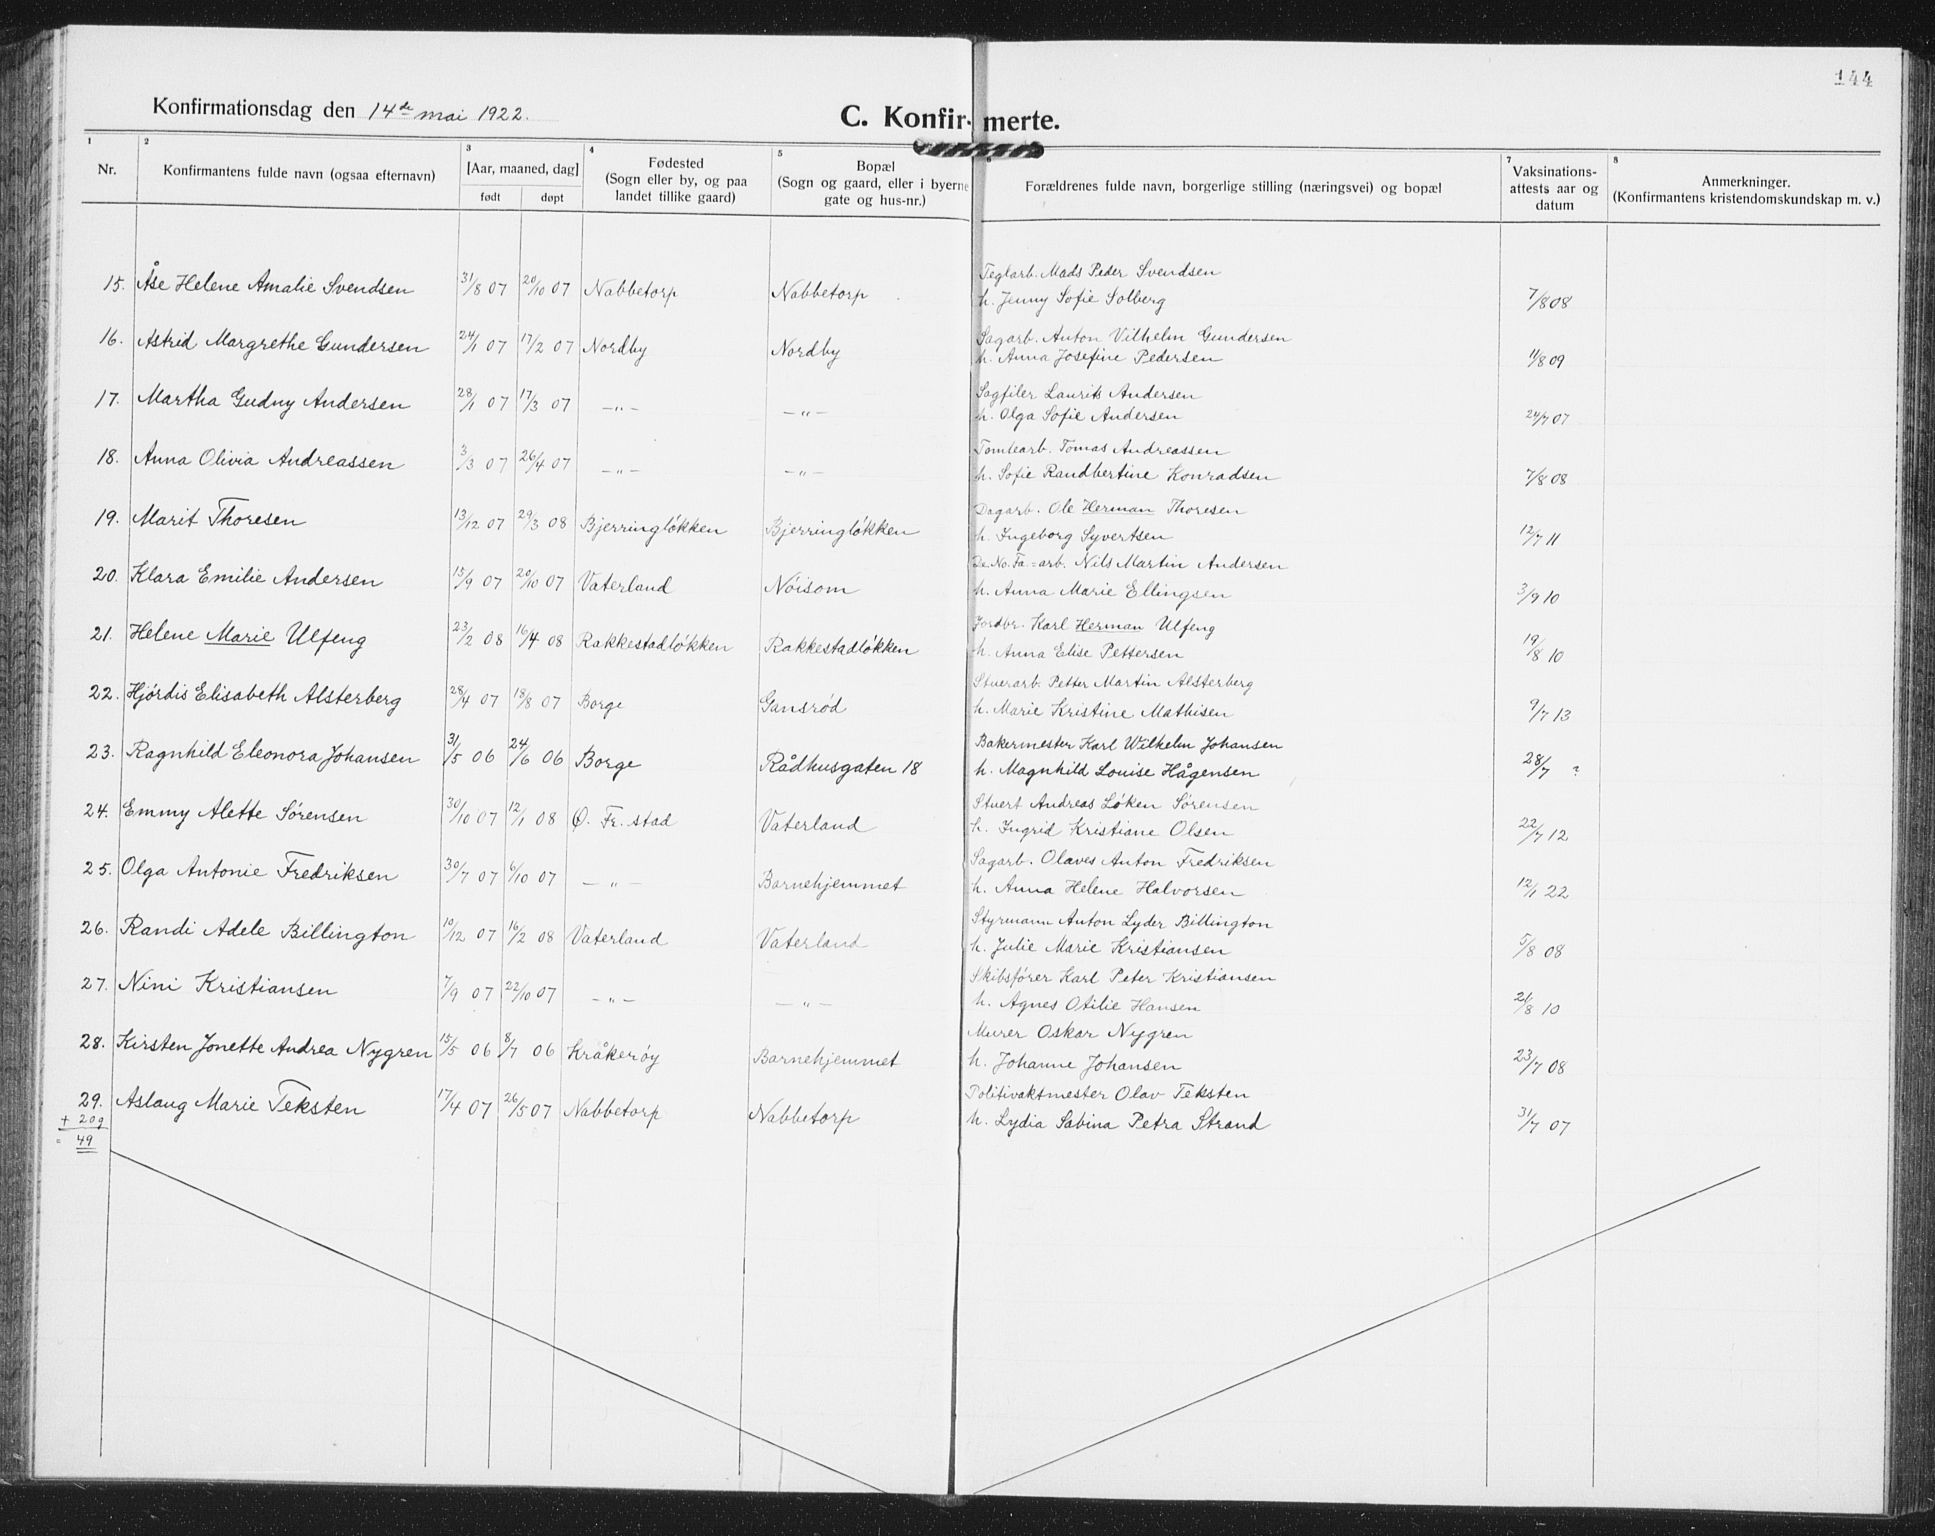 144
Konfirmationsdag den 14de mai 1922.
C. Konfirmerte.
1 2 3 4 5 7 8
Nr. Konfirmantens fulde navn (ogsaa efternavn) [Aar, maaned, dag] født døpt Fødested (Sogn eller by, og paa landet tillike gaard) Bopæl (Sogn og gaard, eller i byerne gate og hus-nr.) Forældrenes fulde navn, borgerlige stilling (næringsvei) og bopæl Vaksinations-attests aar og datum Anmerkninger. (Konfirmantens kristendomskundskap m. v.)
15. Åse Helene Amalie Svendsen 31/8 07 20/10 07 Nabbetorp Nabbetorp Teglarb. Mads Peder Svendsen
h. Jenny Sofie Solberg 7/8 08
16. Astrid Margrethe Gundersen 24/1 07 17/2 07 Nordby Nordby Sagarb. Anton Vilhelm Gundersen
h. Anna Josefine Pedersen 11/8 09
17. Martha Gudny Andersen 28/1 07 17/3 07 —"— —"— Sagfiler Laurits Andersen
h. Olga Sofie Andersen 24/7 07
18. Anna Olivia Andreassen 3/3 07 26/4 07 —"— —"— Tomtearb. Tomas Andreassen
h. Sofie Randbertine Konradsen 7/8 08
19. Marit Thoresen 13/12 07 29/3 08 Bjerringløkken Bjerringløkken Dagarb. Ole Herman Thoresen
h. Ingeborg Syvertsen 12/7 11
20. Klara Emilie Andersen 15/9 07 20/10 07 Vaterland Nøisom De No. Fa=arb. Nils Martin Andersen
h. Anna Marie Ellingsen 3/9 10
21. Helene Marie Ulfeng 23/2 08 16/4 08 Rakkestadløkken Rakkestadløkken Jordbr. Karl Herman Ulfeng
h. Anna Elise Pettersen 19/8 10
22. Hjørdis Elisabeth Alsterberg 28/4 07 18/8 07 Borge Gansrød Stuerarb. Petter Martin Alsterberg
h. Marie Kristine Mathisen 9/7 13
23. Ragnhild Eleonora Johansen 31/5 06 24/6 06 Borge Rådhusgaten 18 Bakermester Karl Wilhelm Johansen
h. Magnhild Louise Hågensen 28/7 ?
24. Emmy Alette Sørensen 30/10 07 12/1 08 Ø. Fr. stad Vaterland Stuert Andreas Løken Sørensen
h. Ingrid Kristiane Olsen 22/7 12
25. Olga Antonie Fredriksen 30/7 07 6/10 07 —"— Barnehjemmet Sagarb. Olaves Anton Fredriksen
h. Anna Helene Halvorsen 12/1 22
26. Randi Adele Billington 10/12 07 16/2 08 Vaterland Vaterland Styrmann Anton Lyder Billington
h. Julie Marie Kristiansen 5/8 08
27. Nini Kristiansen 7/9 07 22/10 07 —"— —"— Skibsfører Karl Peter Kristiansen
h. Agnes Otilie Hansen 21/8 10
28. Kirsten Jonette Andrea Nygren 15/5 06 8/7 06 Kråkerøy Barnehjemmet Murer Oskar Nygren
h. Johanne Johansen 23/7 08
29. Aslaug Marie Teksten 17/4 07 26/5 07 Nabbetorp Nabbetorp Politivaktmester Olav Teksten
h. Lydia Sabina Petra Strand 31/7 07
+ 20g
= 49